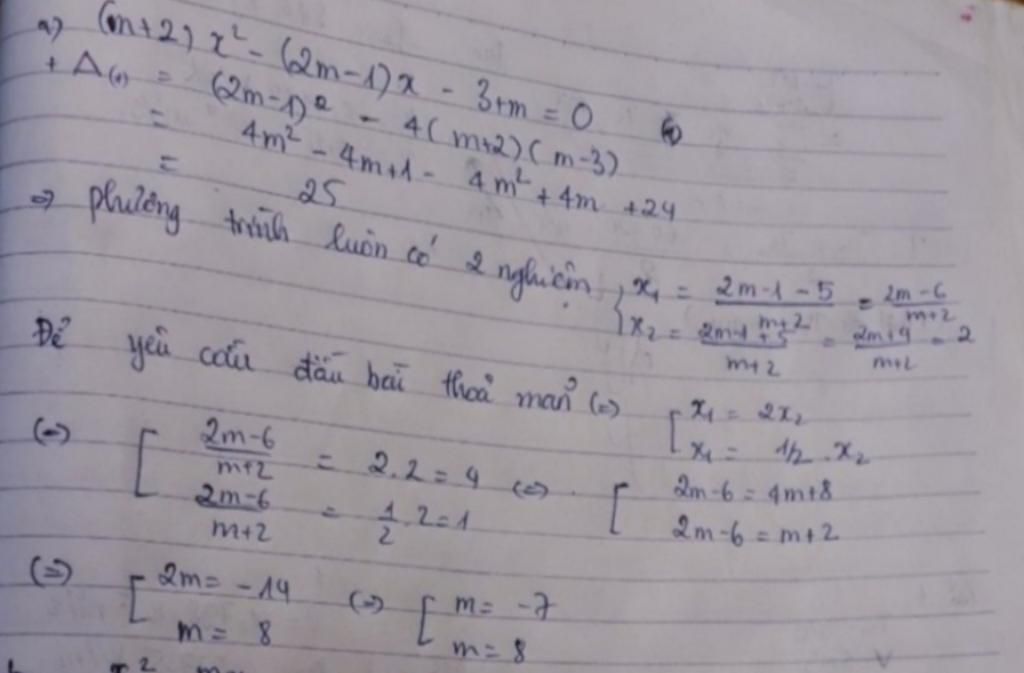 a) (m+2) x² - (2m-1)x - 3+m = 0 (1)
+ Δ₍₁₎ = (2m-1)² - 4(m+2)(m-3)
= 4m² - 4m+1 - 4m² + 4m + 24
= 25
⇒ phương trình luôn có 2 nghiệm { x₁ = (2m-1-5)/(m+2) = (2m-6)/(m+2)
x₂ = (2m-1+5)/(m+2) = (2m+4)/(m+2) = 2
Để yêu cầu đầu bài thoả mãn (=) [ x₁ = 2x₂
x₁ = 1/2 . x₂
(=) [ (2m-6)/(m+2) = 2.2 = 4 (=) [ 2m-6 = 4m+8
(2m-6)/(m+2) = 1/2 . 2 = 1 2m-6 = m+2
(=) [ 2m = -14 (=) [ m = -7
m = 8 m = 8